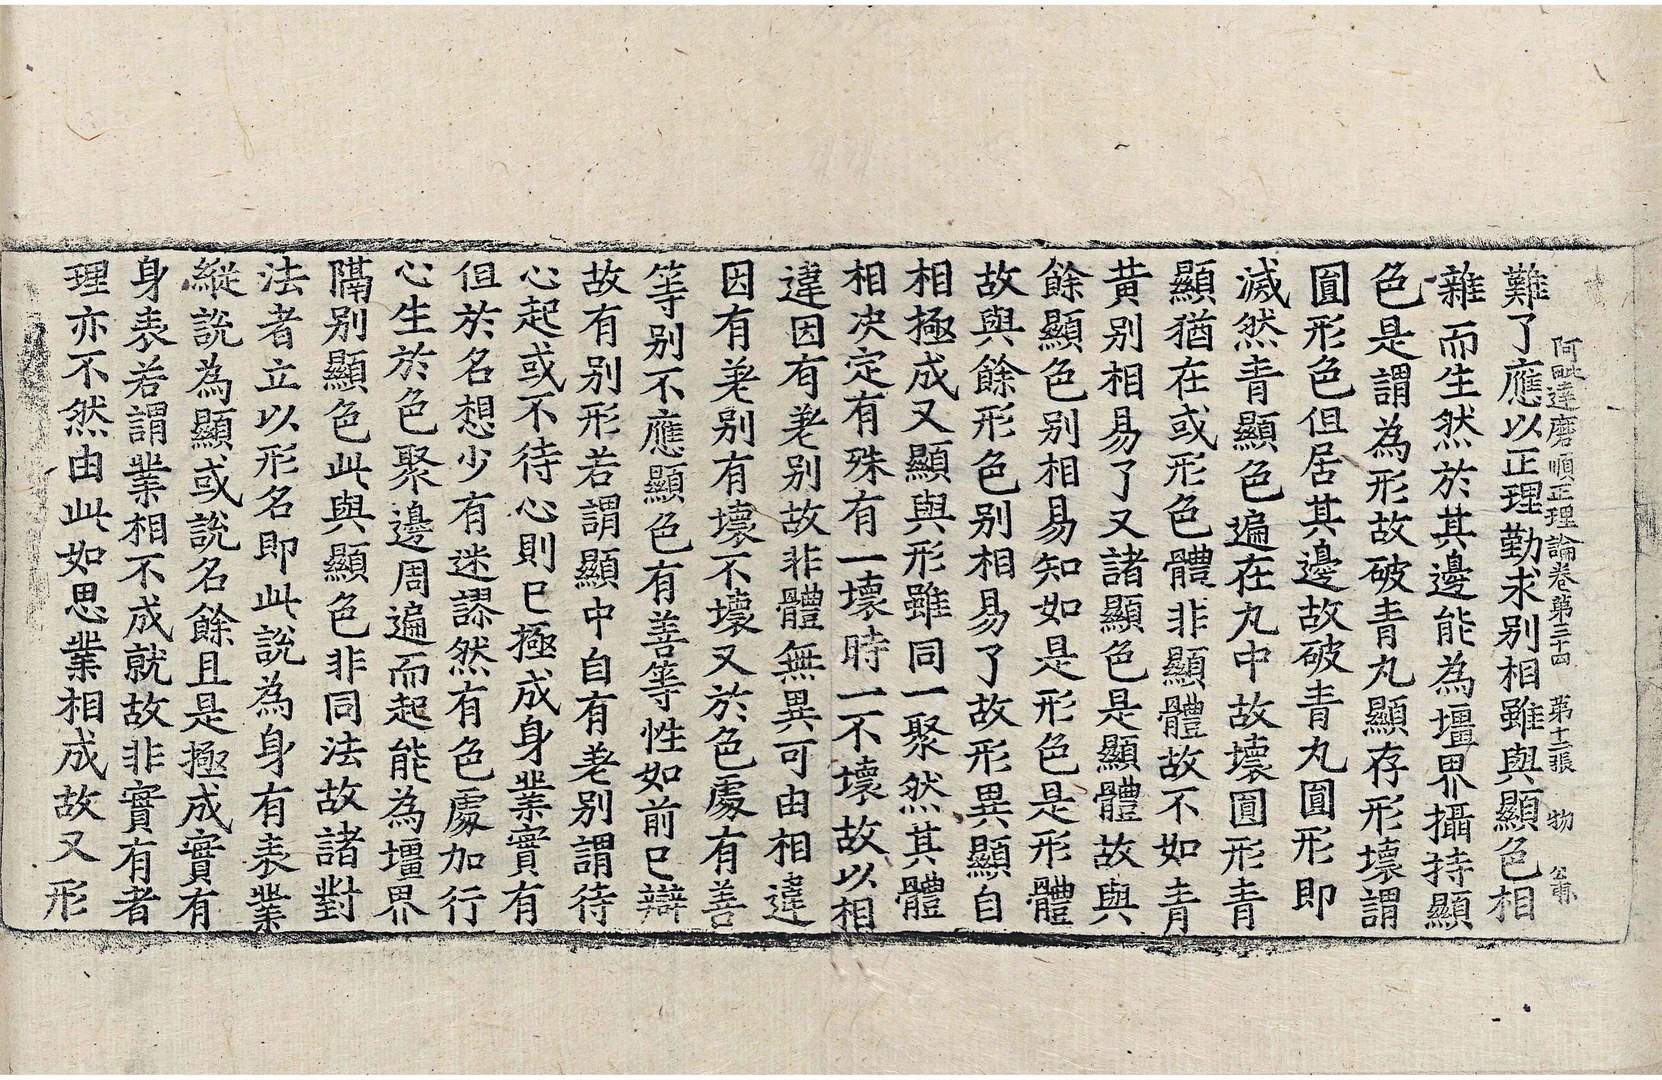 阿毗達磨順正理論卷第三十四　第十二張　物
難了應以正理勤求別相雖與顯色相
雜而生然於其邊能為壃界攝持顯
色是謂為形故破青丸顯存形壞謂
圓形色但居其邊故破青丸圓形即
滅然青顯色遍在丸中故壞圓形青
顯猶在或形色體非顯體故不如青
黃別相易了又諸顯色是顯體故與
餘顯色別相易知如是形色是形體
故與餘形色別相易了故形異顯自
相極成又顯與形雖同一聚然其體
相決定有殊有一壞時一不壞故以相
違因有差別故非體無異可由相違
因有差別有壞不壞又於色處有善
等別不應顯色有善等性如前已辯
故有別形若謂顯中自有差別謂待
心起或不待心則已極成身業實有
但於名想少有迷謬然有色處加行
心生於色聚邊周遍而起能為壃界
隔別顯色此與顯色非同法故諸對
法者立以形名即此說為身有表業
縱說為顯或說名餘且是極成實有
身表若謂業相不成就故非實有者
理亦不然由此如思業相成故又形